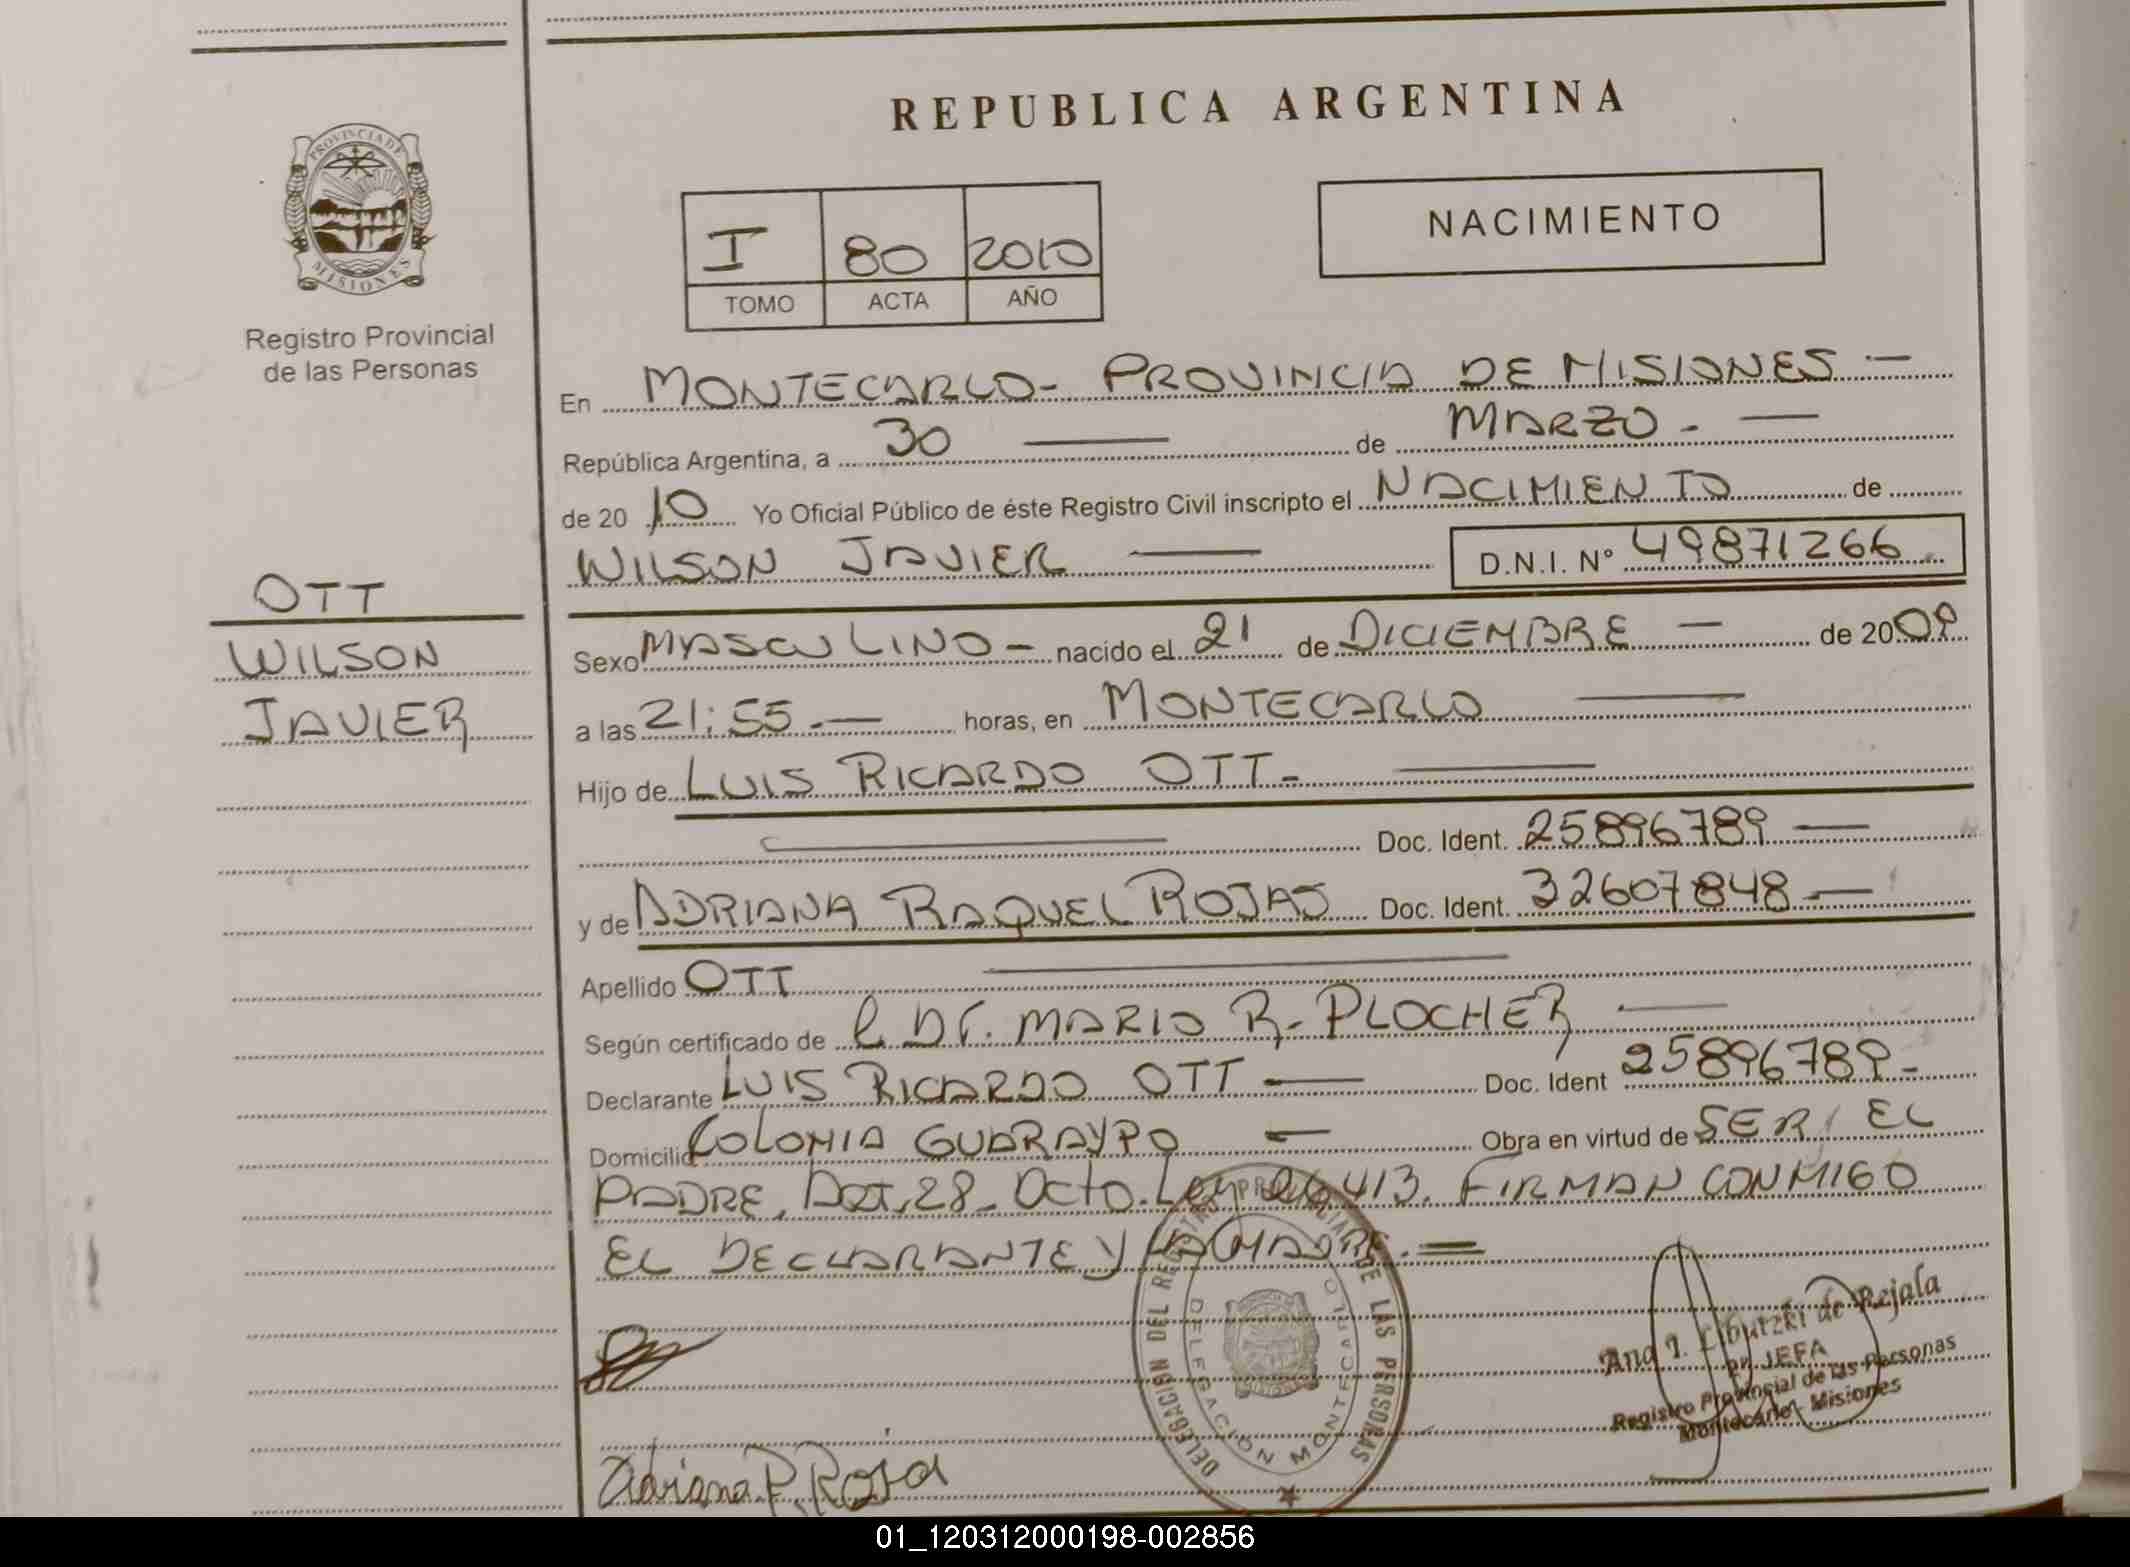 REPUBLICA ARGENTINA
PROVINCIA DE MISIONES
Registro Provincial
de las Personas
NACIMIENTO
I 80 2010
TOMO ACTA AÑO
En MONTECARLO - PROVINCIA DE MISIONES -
República Argentina, a 30 — de MARZO. —
de 2010 Yo Oficial Público de éste Registro Civil inscripto el NACIMIENTO de
WILSON JAVIER — D.N.I. Nº 49871266
OTT
WILSON
JAVIER
Sexo MASCULINO - nacido el 21 de DICIEMBRE — de 2009
a las 21:55.— horas, en MONTECARLO —
Hijo de LUIS RICARDO OTT- —
— Doc. Ident. 25896789 —
y de ADRIANA RAQUEL ROJAS Doc. Ident. 32607848 —
Apellido OTT —
Según certificado de MARIO R. PLOCHER —
Declarante LUIS RICARDO OTT — Doc. Ident 25896789-
Domicilio COLONIA GUARAYPO — Obra en virtud de SER EL
PADRE. Art. 28- Octo. Ley 26413. FIRMAN CONMIGO
EL DECLARANTE Y LA MADRE. =
DELEGACION DEL REGISTRO PROVINCIAL DE LAS PERSONAS
DELEGACION MONTECARLO
Ana de Rejala
JEFA
Registro Provincial de las Personas
Montecarlo - Misiones
Adriana R. Roja
01_120312000198-002856